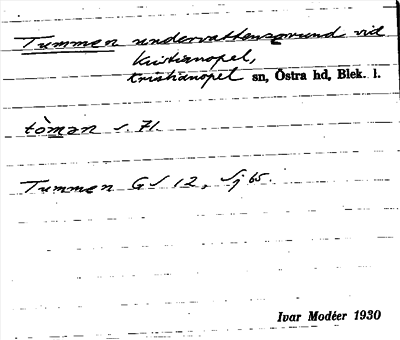 Tummen undervattensgrund vid
Kristianopel,
Kristianopel sn, Östra hd, Blek. l.
tòman s. 71.
Tummen GS 12, Sj 65.
Ivar Modéer 1930